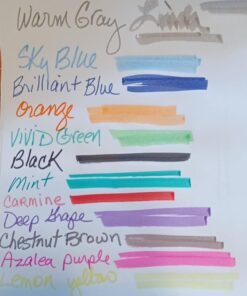 Warm Gray
Sky Blue
Brilliant Blue
Orange
Vivid Green
Black
Mint
Carmine
Deep Grape
Chestnut Brown
Azalea purple
Lemon yellow